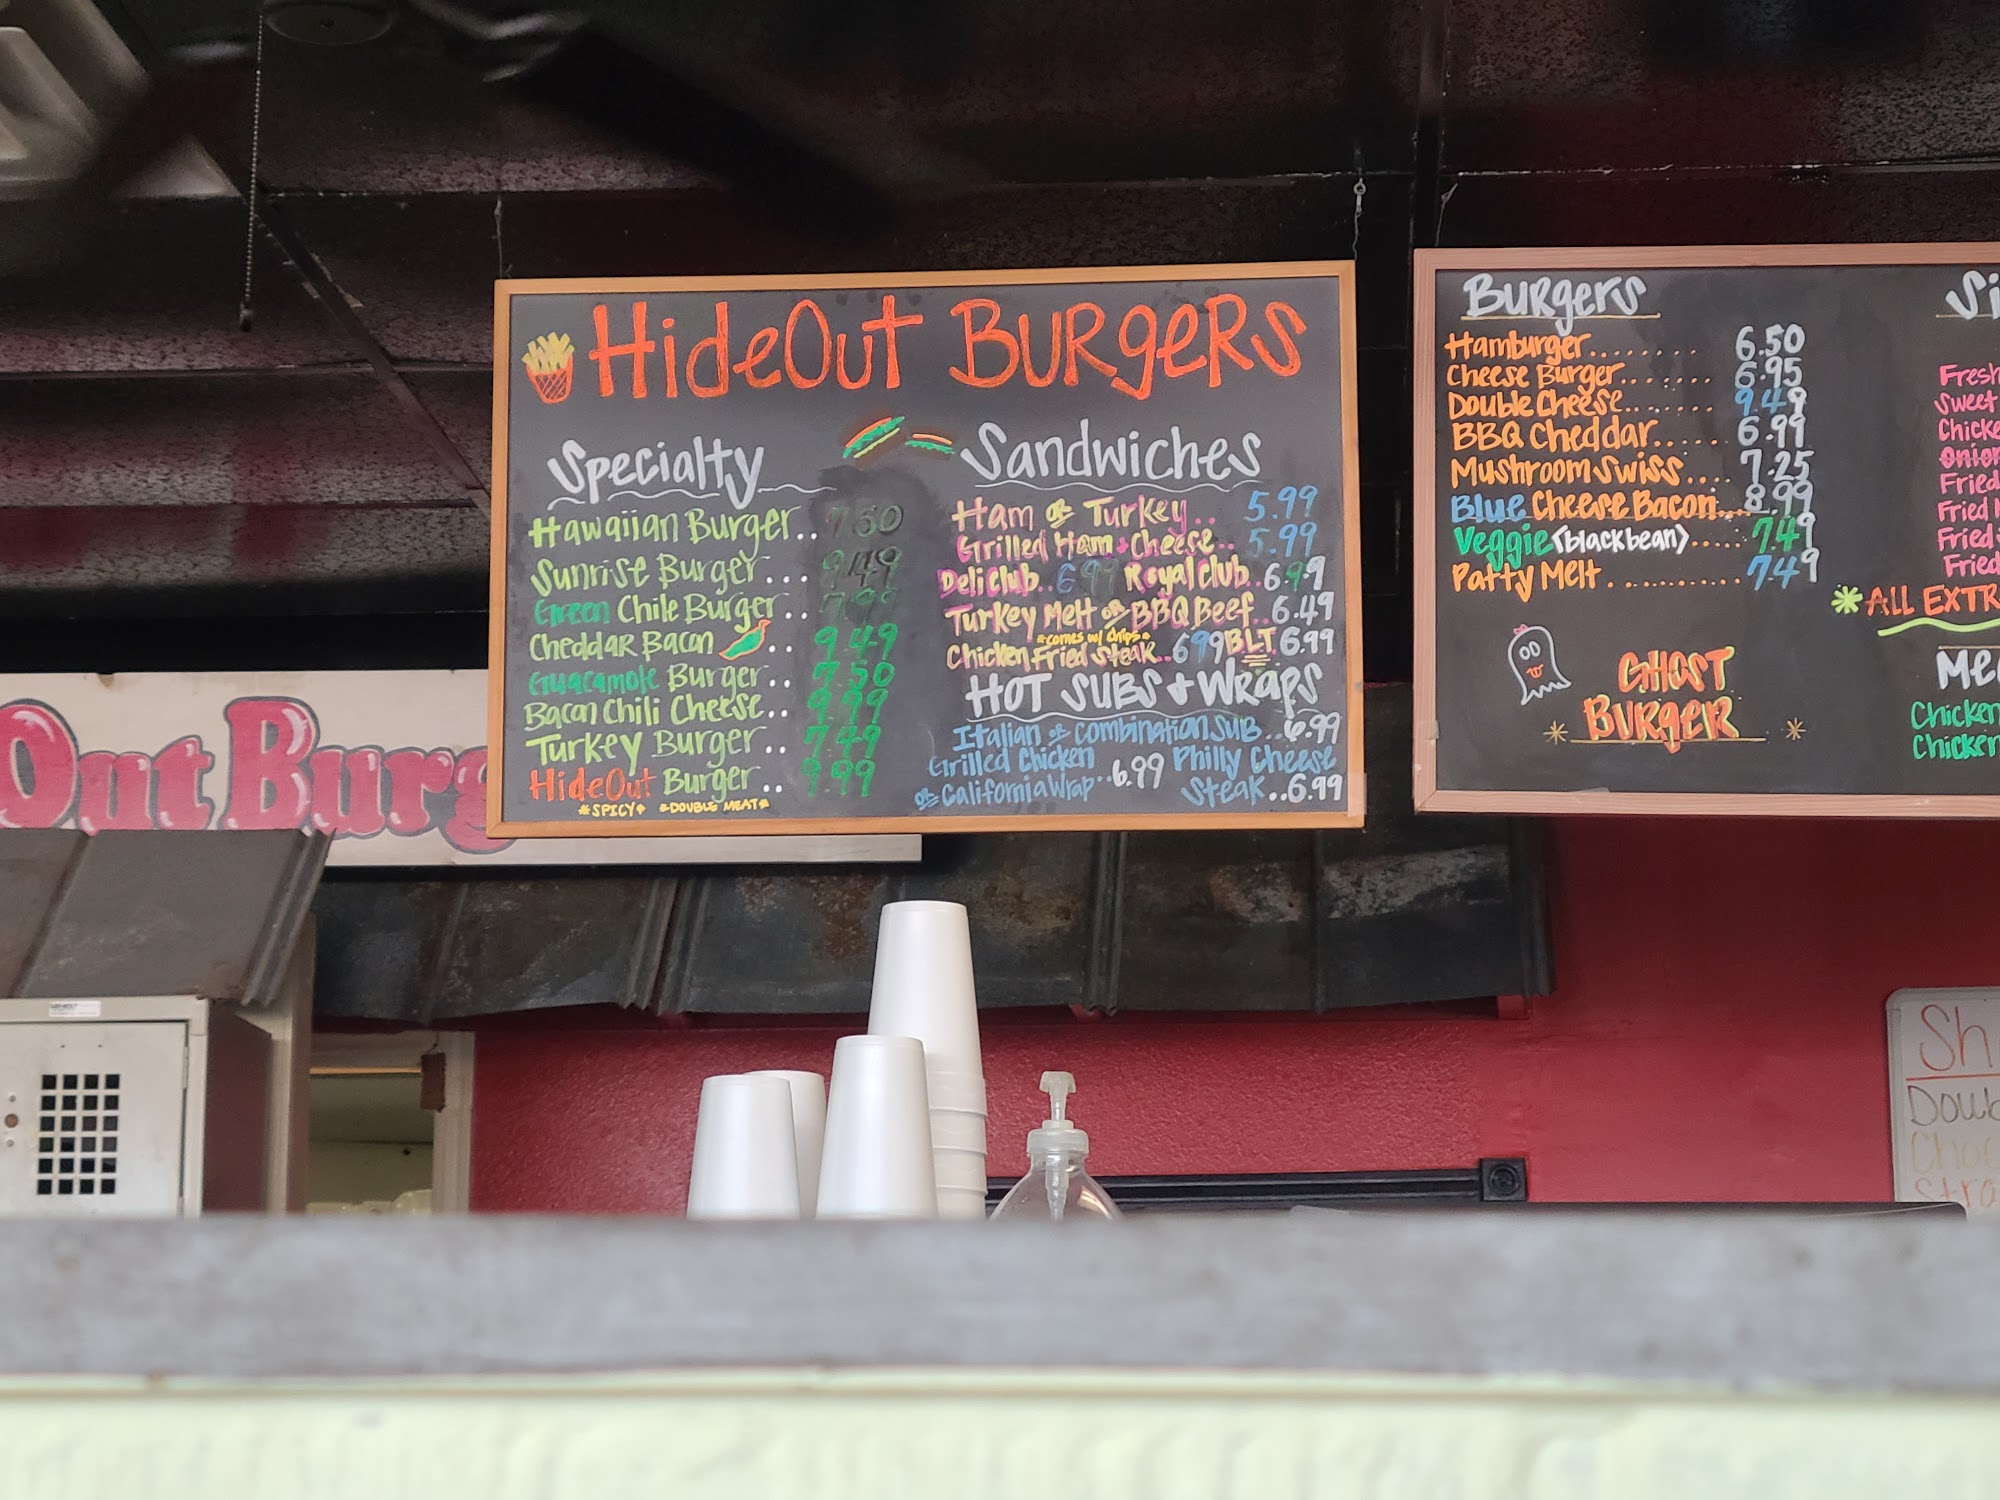 HideOut Burgers
Specialty
Hawaiian Burger.. 7.50
Sunrise Burger... 9.49
Green Chile Burger.. 7.99
Cheddar Bacon .. 9.49
Guacamole Burger.. 7.50
Bacon Chili Cheese.. 9.99
Turkey Burger.. 7.49
HideOut Burger.. 9.99
*SPICY* *DOUBLE MEAT*
Sandwiches
Ham or Turkey.. 5.99
Grilled Ham & Cheese.. 5.99
Deli Club.. 6.99 Royal Club.. 6.99
Turkey Melt or BBQ Beef.. 6.49
*comes w/ chips*
Chicken Fried Steak.. 6.99 BLT 6.99
HOT SUBS & WRAPS
Italian or Combination Sub.. 6.99
Grilled Chicken
or California Wrap..6.99
Philly Cheese
Steak..6.99
Burgers
Hamburger........ 6.50
Cheese Burger....... 6.95
Double Cheese....... 9.49
BBQ Cheddar..... 6.99
Mushroom Swiss.... 7.25
Blue Cheese Bacon.... 8.99
Veggie (black bean)..... 7.49
Patty Melt ........... 7.49
GHOST
BURGER
Si
Fresh
Sweet
Chicke
Onion
Fried
Fried
Fried
Fried
*ALL EXTR
Me
Chicken
Chicken
Out Burg
Sh
Doub
Choc
Stra